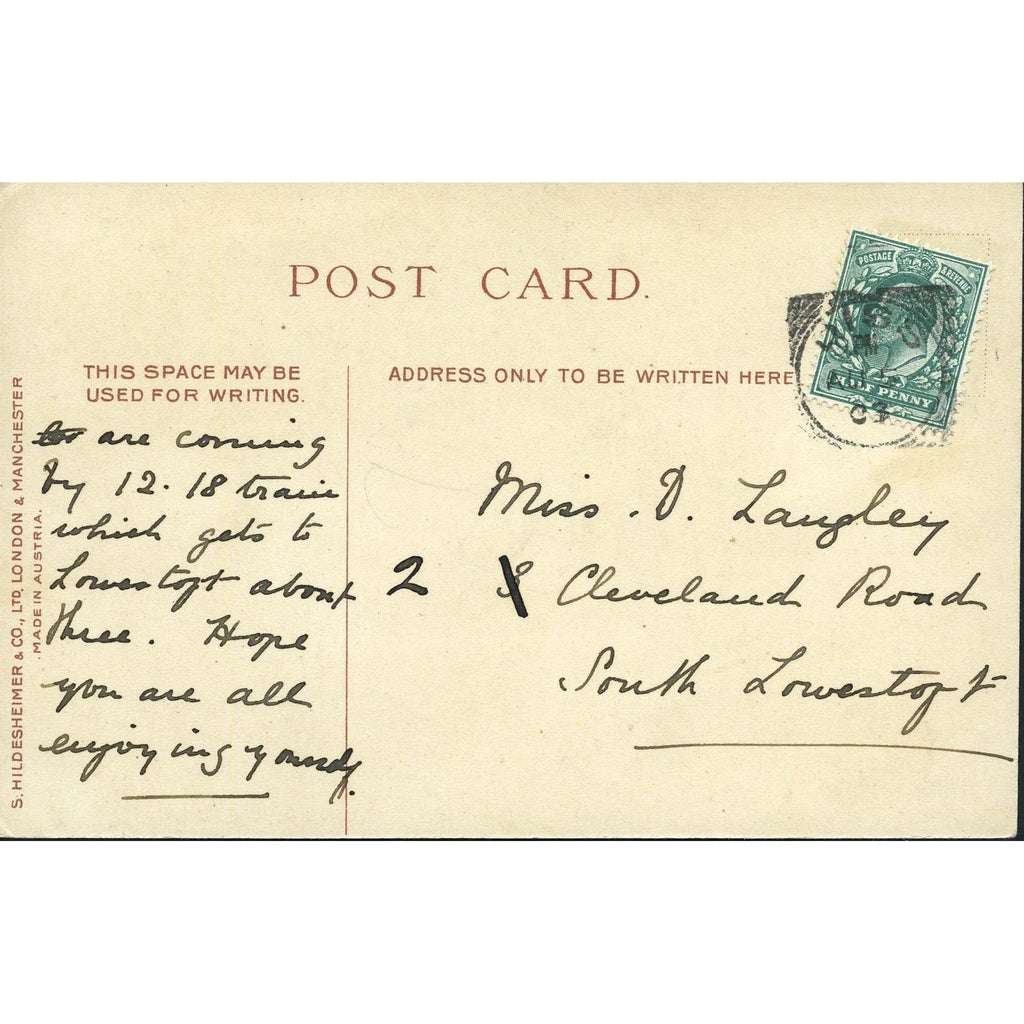 POST CARD.
THIS SPACE MAY BE
USED FOR WRITING.
ADDRESS ONLY TO BE WRITTEN HERE
POSTAGE & REVENUE
HALF PENNY
are coming
by 12.18 train
which gets to
Lowestoft about
three. Hope
you are all
enjoying yourself.
Miss. D. Langley
2 Cleveland Road
South Lowestoft
S. HILDESHEIMER & CO., LTD, LONDON & MANCHESTER
MADE IN AUSTRIA.